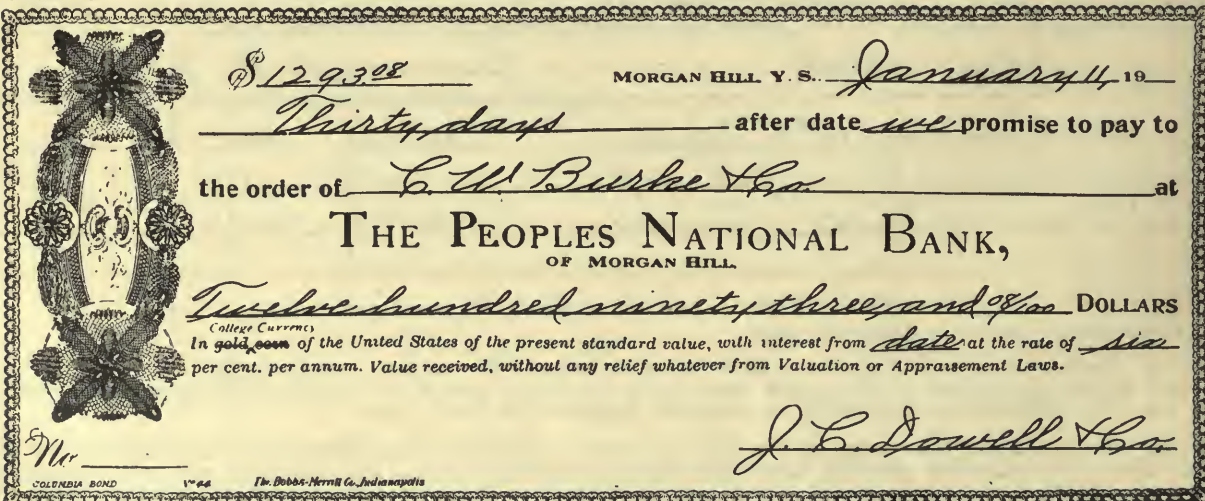 $1293 08 MORGAN HILL Y. S. January 11, 19
Thirty days after date we promise to pay to
the order of C. W. Burke & Co. at
THE PEOPLES NATIONAL BANK,
OF MORGAN HILL.
Twelve hundred ninety three and 08/100 DOLLARS
College Currency
In gold coin of the United States of the present standard value, with interest from date at the rate of six
per cent. per annum. Value received, without any relief whatever from Valuation or Appraisement Laws.
J. C. Dowell & Co.
No
COLUMBIA BOND No 44 The Bobbs-Merrill Co., Indianapolis